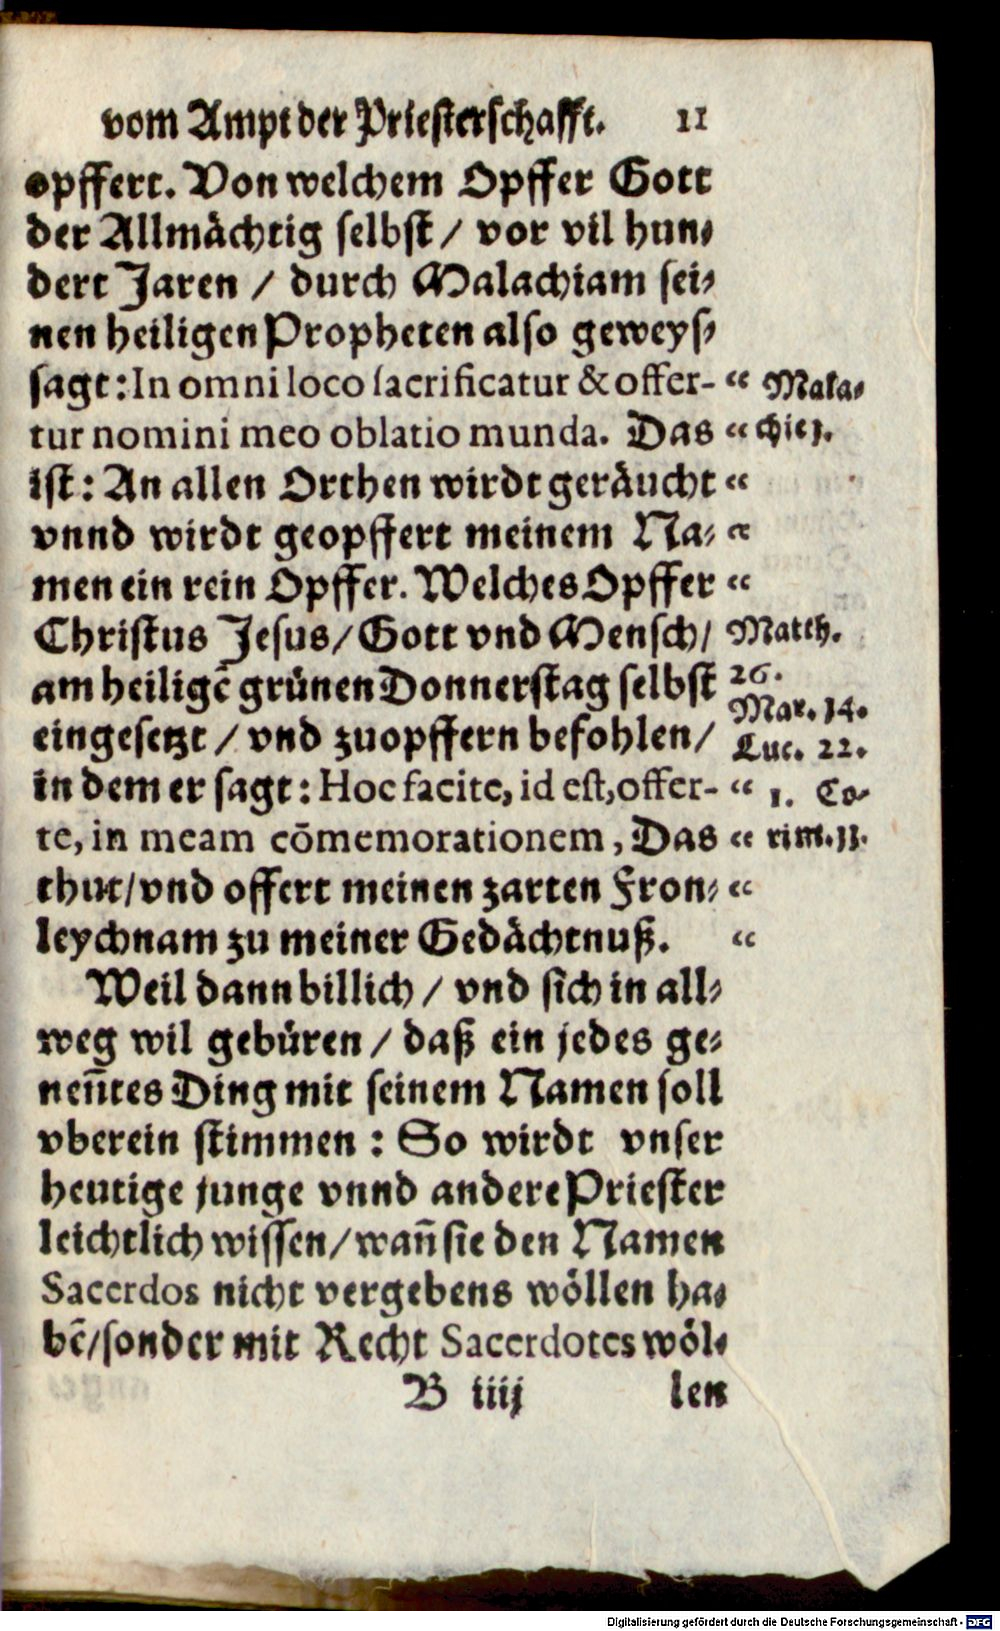 vom Ampt der Priesterschafft. 11
opffert. Von welchem Opffer Gott
der Allmächtig selbst / vor vil hun-
dert Jaren / durch Malachiam sei-
nen heiligen Propheten also geweys-
sagt: In omni loco sacrificatur & offer- “ Mala-
tur nomini meo oblatio munda. Das “ chie 1.
ist: An allen Orthen wirdt geräucht “
vnnd wirdt geopffert meinem Na- “
men ein rein Opffer. Welches Opffer “
Christus Jesus / Gott vnd Mensch / Matth.
am heiligẽ grünen Donnerstag selbst 26.
Mar. 14.
eingesetzt / vnd zuopffern befohlen / Luc. 22.
in dem er sagt: Hoc facite, id est, offer- “ 1. Co-
te, in meam cõmemorationem, Das “ rint. 11.
thut / vnd offert meinen zarten Fron- “
leychnam zu meiner Gedächtnuß. “
Weil dann billich / vnd sich in all-
weg wil gebüren / daß ein jedes ge-
neñtes Ding mit seinem Namen soll
vberein stimmen : So wirdt vnser
heutige junge vnnd andere Priester
leichtlich wissen / wañ sie den Namen
Sacerdos nicht vergebens wöllen ha-
bẽ / sonder mit Recht Sacerdotes wöl-
B iiij len
Digitalisierung gefördert durch die Deutsche Forschungsgemeinschaft - DFG